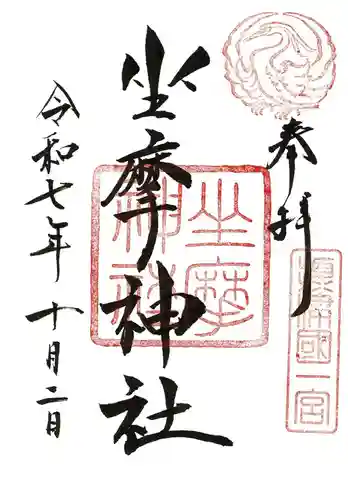 奉拝
摂津国一宮
坐摩神社
坐摩神社
令和七年 十月二日